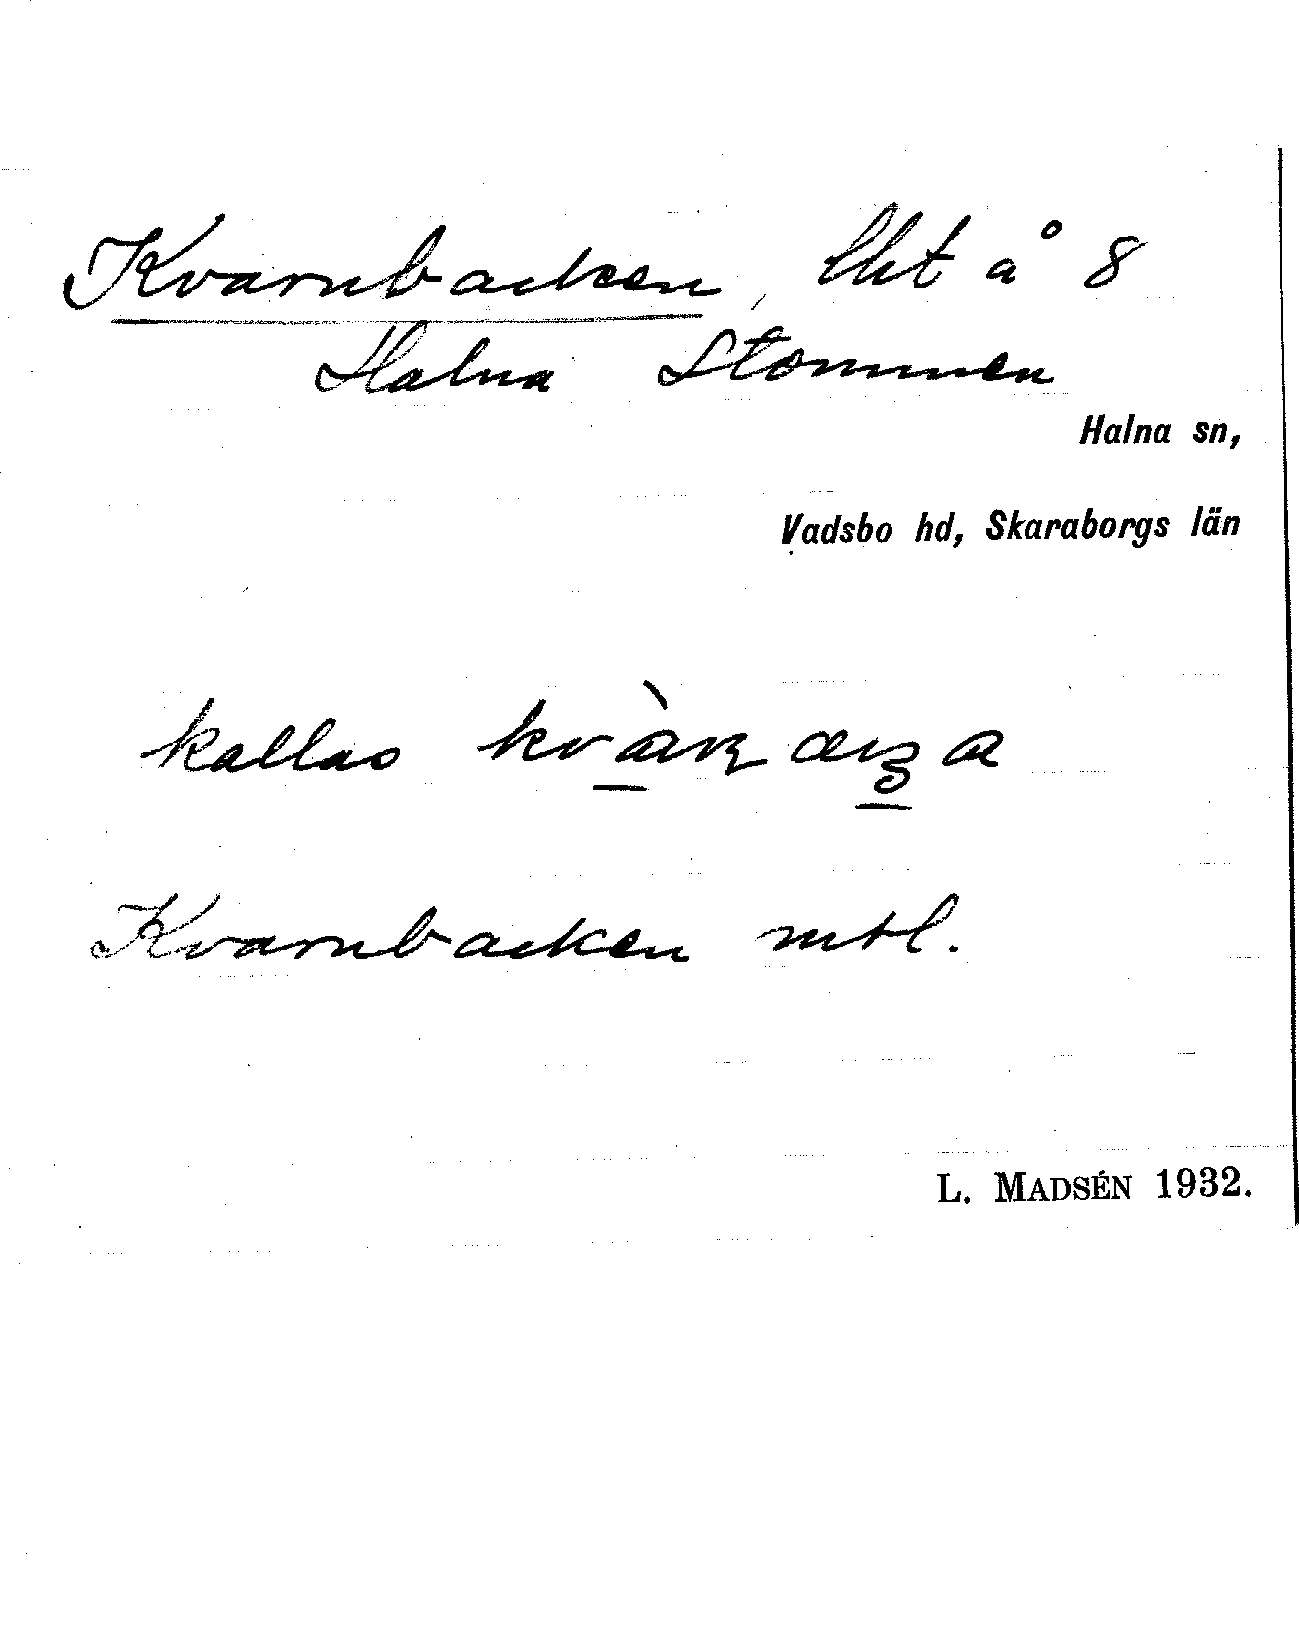 Kvarnbacken, lht å 8
Halna Stommen
Halna sn,
Vadsbo hd, Skaraborgs län
kallas
Kvarnbacken mtl.
L. MADSÉN 1932.